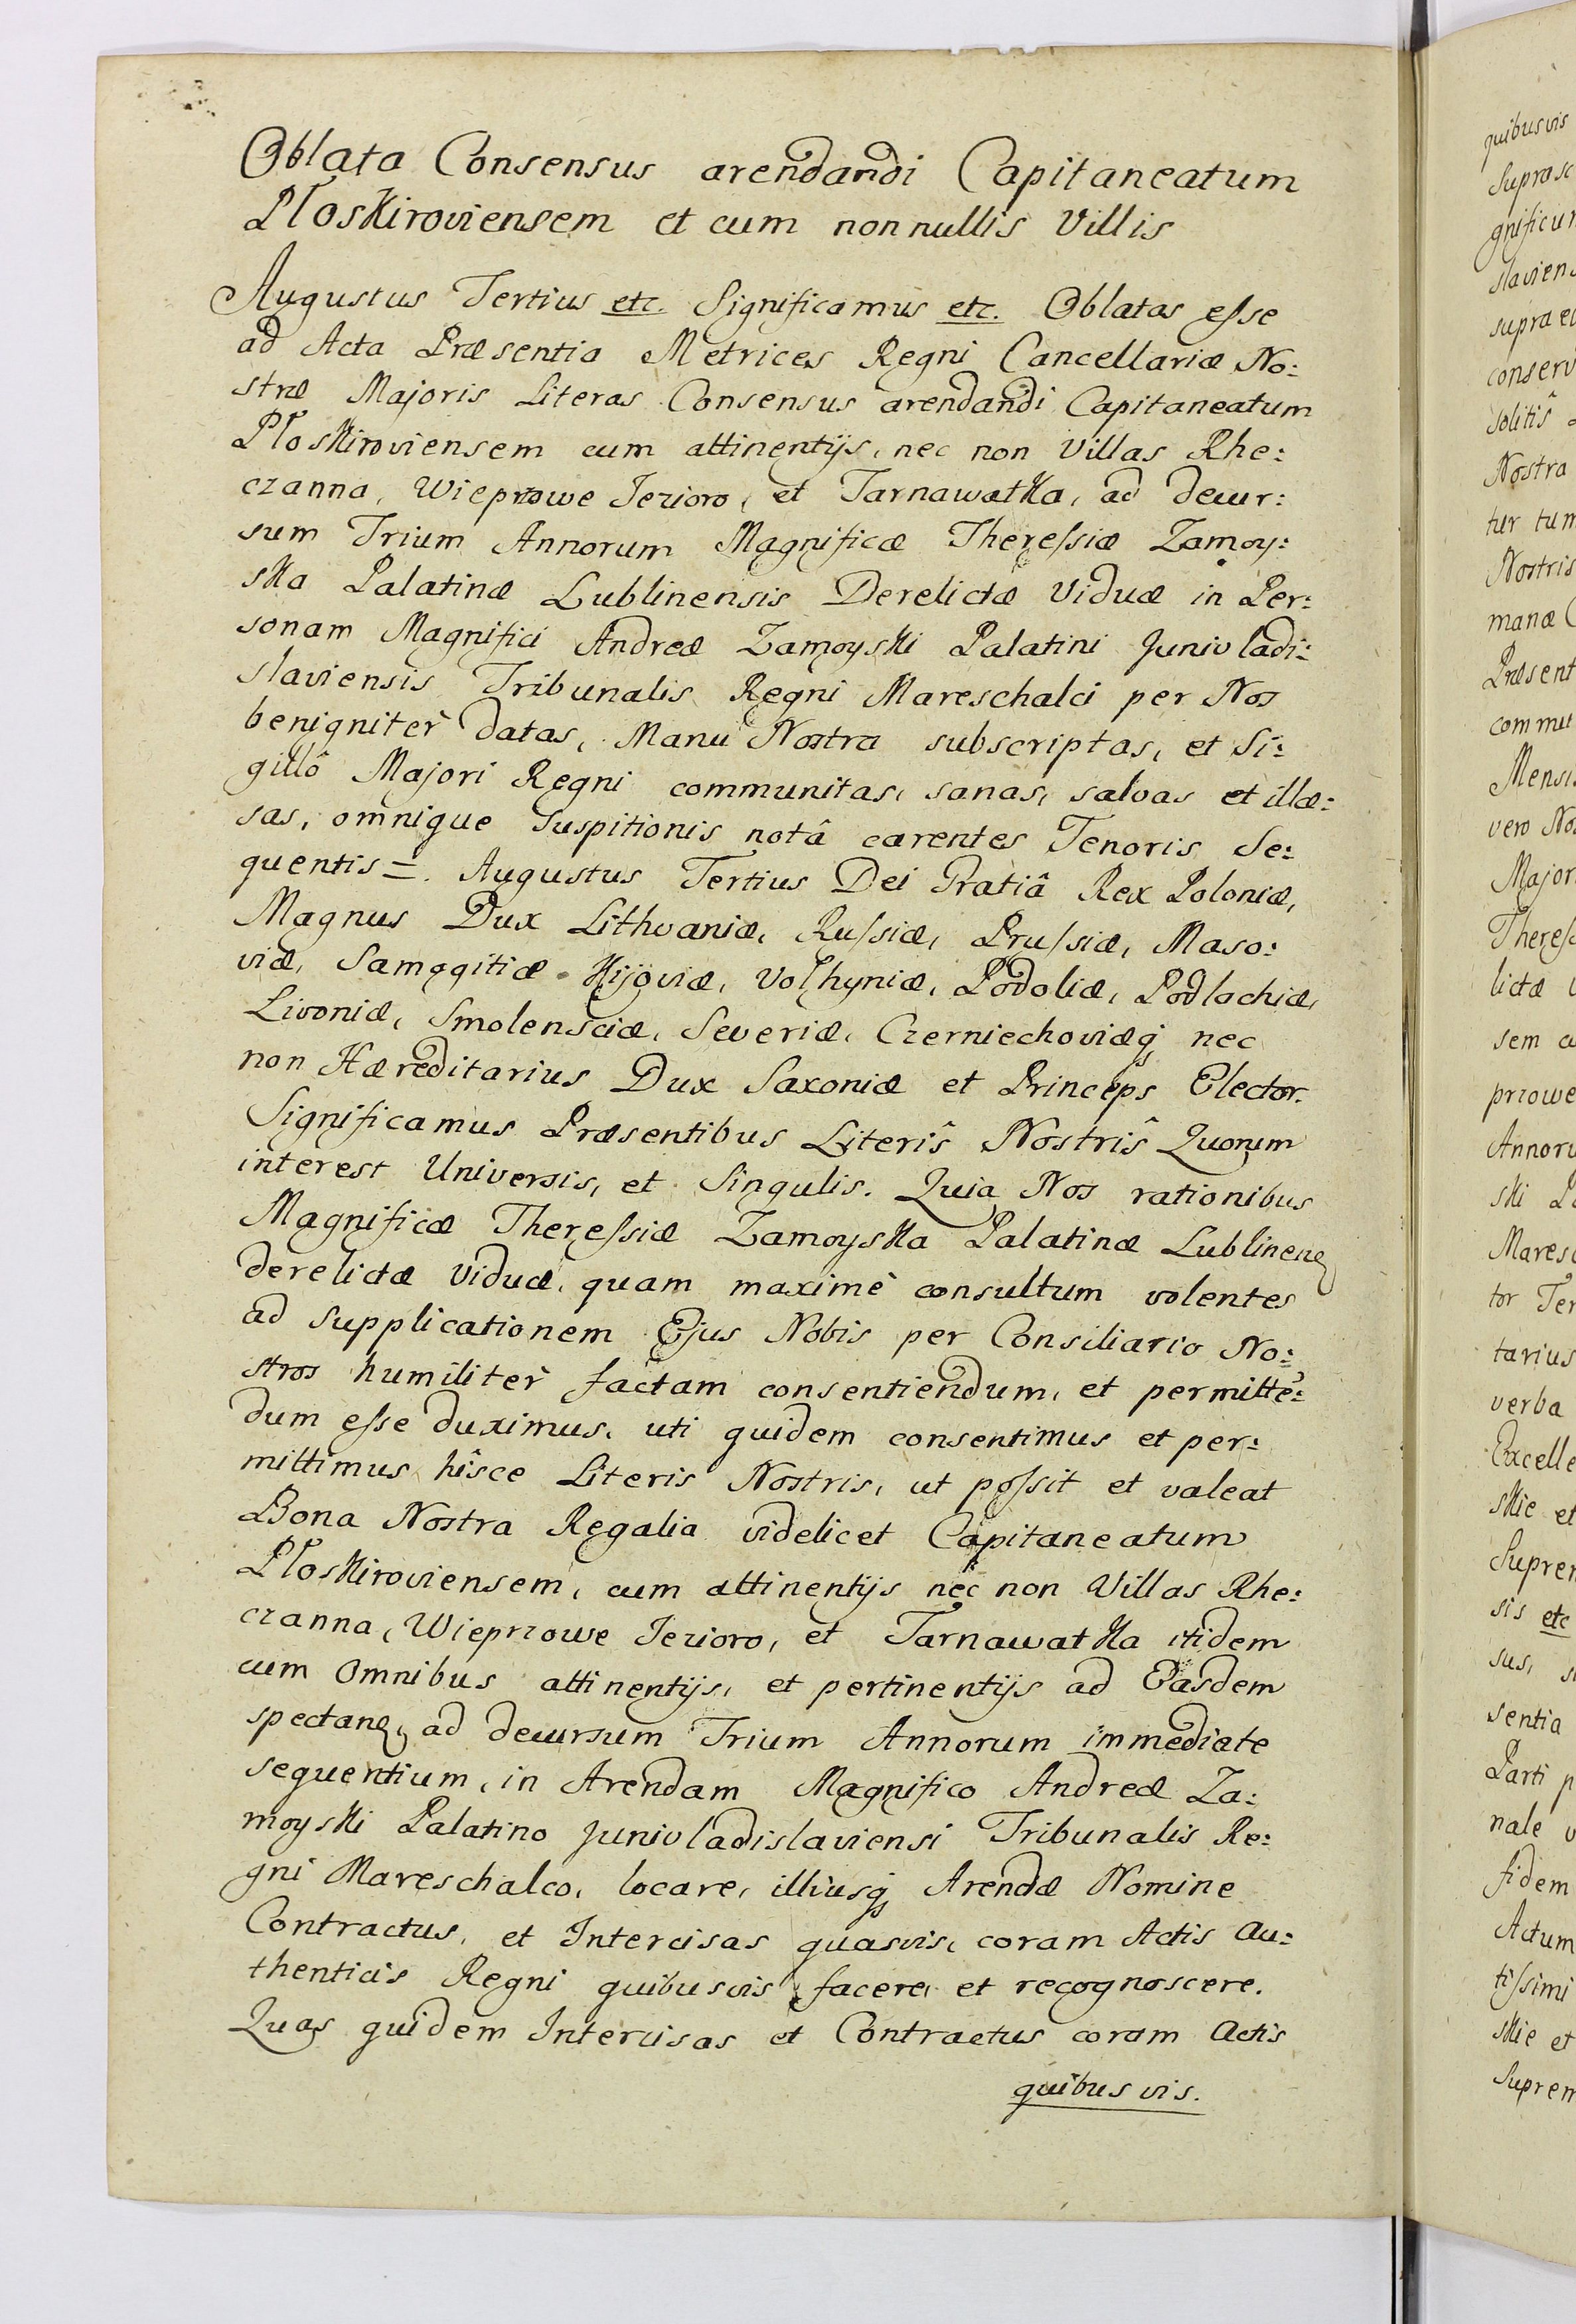 Oblata Consensus arendandi Capitaneatum
Płoskiroviensem et cum nonnullis Villis
Augustus Tertius etc. Significamus etc. Oblatas esse
ad Acta Præsentia Metrices Regni Cancellariæ No:
stræ Majoris Literas Consensus arendandi Capitaneatum
Płoskiroviensem cum attinentijs, nec non Villas Rhe:
czanna, Wieprzowe Jezioro, et Tarnawatka, ad decur:
sum Trium Annorum Magnificæ Theressiæ Zamoy:
ska Palatinæ Lublinensis Derelictæ Viduæ in Per:
sonam Magnifici Andreæ Zamoyski Palatini Junivladi:
slaviensis Tribunalis Regni Mareschalci per Nos
benigniter datas, Manu Nostra subscriptas, et Si:
gillô Majori Regni communitas, sanas, salvas et illæ:
sas, omnique Suspitionis notâ carentes Tenoris Se:
quentis =. Augustus Tertius Dei Gratiâ Rex Poloniæ,
Magnus Dux Lithvaniæ, Russiæ, Prussiæ, Maso:
viæ, Samogitiæ Kijoviæ, Volhyniæ, Podoliæ, Podlachiæ,
Livoniæ, Smolensciæ, Severiæ, Czerniechoviæq; nec
non Hæreditarius Dux Saxoniæ et Princeps Elector.
Significamus Præsentibus Literîs Nostrîs Quorum
interest Universis, et Singulis. Quia Nos rationibus
Magnificæ Theressiæ Zamoyska Palatinæ Lublinen
derelictæ Viduæ, quam maximè consultum volentes
ad Supplicationem Ejus Nobis per Consiliario No:
stros humiliter factam consentiendum, et permittē:
dum esse duximus, uti quidem consentimus et per:
mittimus hîsce Literis Nostris, ut possit et valeat
Bona Nostra Regalia videlicet Capitaneatum
Płoskiroviensem, cum attinentijs nec non Villas Rhe:
czanna, Wieprzowe Jezioro, et Tarnawatka itidem
cum Omnibus attinentijs, et pertinentijs ad Easdem
spectan, ad decursum Trium Annorum immediate
sequentium, in Arendam Magnifico Andreæ Za:
moyski Palatino Junivladislaviensi Tribunalis Re:
gni Mareschalco, locare, illiusq; Arendæ Nomine
Contractus, et Intercisas quasvis, coram Actis Au:
thenticis Regni quibusvis facere, et recognoscere.
Quas quidem Intercisas et Contractus coram Actis
quibus vis.
quibusvis
Suprasc
gnificum
slaviens
supra
conserv
solitîs
Nostra
tur tum
Nostris
manæ
Præsent
commu
Mensis
vero Nos
Major
Theress
lictæ
sem cu
przowe
Annoru
ski Pa
Maresc
tor Ter
tarius
verba
Excelle
skie et
Suprem
sis etc
sus, s
sentia
Parti p
nale v
fidem
Actum
tissimi
skie et
Suprem